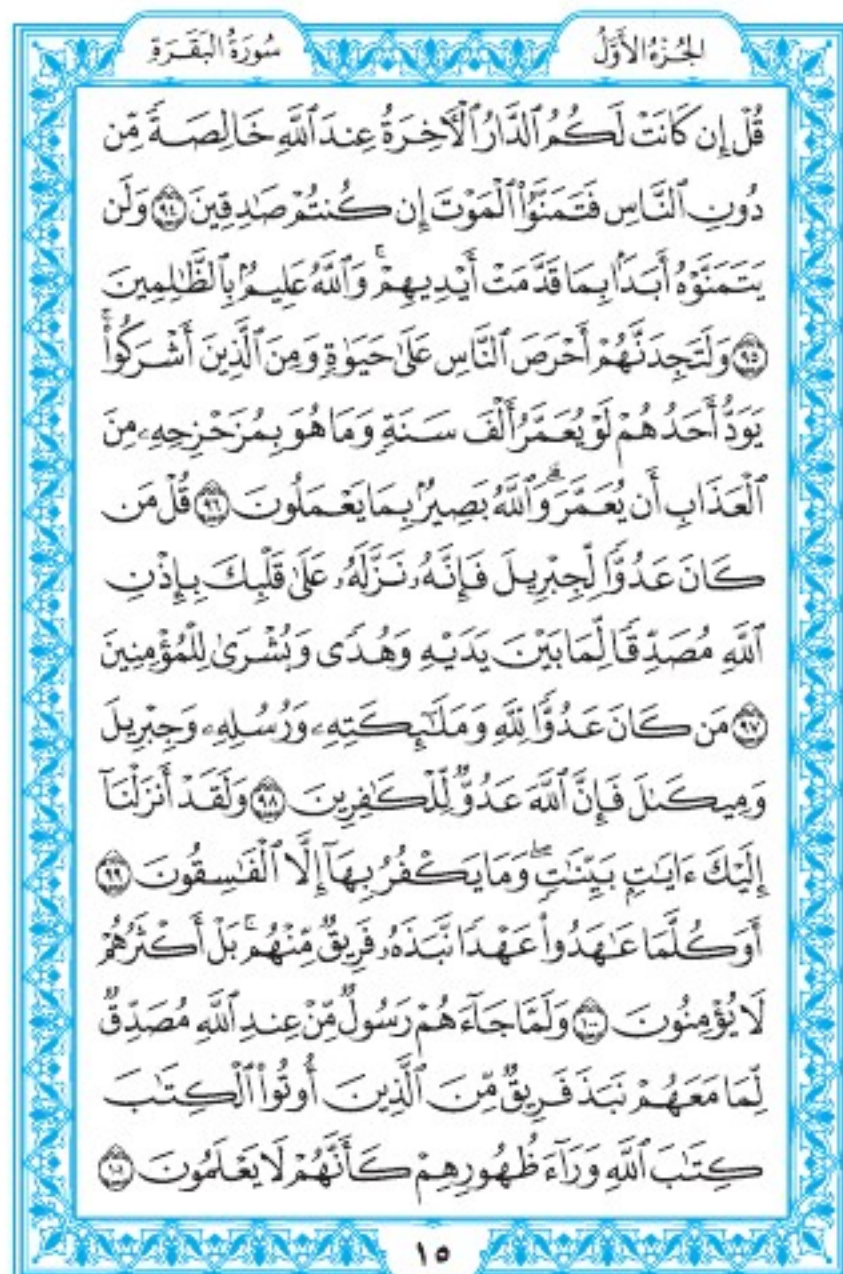 الجُزْءُ الأَوَّلُ
سُورَةُ البَقَرَةِ
قُلْ إِن كَانَتْ لَكُمُ ٱلدَّارُ ٱلْأَخِرَةُ عِندَ ٱللَّهِ خَالِصَةً مِّن
دُونِ ٱلنَّاسِ فَتَمَنَّوُا۟ ٱلْمَوْتَ إِن كُنتُمْ صَٰدِقِينَ ٩٤ وَلَن
يَتَمَنَّوْهُ أَبَدًۢا بِمَا قَدَّمَتْ أَيْدِيهِمْ ۚ وَٱللَّهُ عَلِيمٌۢ بِٱلظَّٰلِمِينَ
٩٥ وَلَتَجِدَنَّهُمْ أَحْرَصَ ٱلنَّاسِ عَلَىٰ حَيَوٰةٍ وَمِنَ ٱلَّذِينَ أَشْرَكُوا۟ ۚ
يَوَدُّ أَحَدُهُمْ لَوْ يُعَمَّرُ أَلْفَ سَنَةٍ وَمَا هُوَ بِمُزَحْزِحِهِۦ مِنَ
ٱلْعَذَابِ أَن يُعَمَّرَ ۗ وَٱللَّهُ بَصِيرٌۢ بِمَا يَعْمَلُونَ ٩٦ قُلْ مَن
كَانَ عَدُوًّا لِّجِبْرِيلَ فَإِنَّهُۥ نَزَّلَهُۥ عَلَىٰ قَلْبِكَ بِإِذْنِ
ٱللَّهِ مُصَدِّقًا لِّمَا بَيْنَ يَدَيْهِ وَهُدًى وَبُشْرَىٰ لِلْمُؤْمِنِينَ
٩٧ مَن كَانَ عَدُوًّا لِّلَّهِ وَمَلَٰٓئِكَتِهِۦ وَرُسُلِهِۦ وَجِبْرِيلَ
وَمِيكَىٰلَ فَإِنَّ ٱللَّهَ عَدُوٌّ لِّلْكَٰفِرِينَ ٩٨ وَلَقَدْ أَنزَلْنَآ
إِلَيْكَ ءَايَٰتٍۭ بَيِّنَٰتٍ ۖ وَمَا يَكْفُرُ بِهَآ إِلَّا ٱلْفَٰسِقُونَ ٩٩
أَوَكُلَّمَا عَٰهَدُوا۟ عَهْدًا نَّبَذَهُۥ فَرِيقٌ مِّنْهُم ۚ بَلْ أَكْثَرُهُمْ
لَا يُؤْمِنُونَ ١٠٠ وَلَمَّا جَآءَهُمْ رَسُولٌ مِّنْ عِندِ ٱللَّهِ مُصَدِّقٌ
لِّمَا مَعَهُمْ نَبَذَ فَرِيقٌ مِّنَ ٱلَّذِينَ أُوتُوا۟ ٱلْكِتَٰبَ
كِتَٰبَ ٱللَّهِ وَرَآءَ ظُهُورِهِمْ كَأَنَّهُمْ لَا يَعْلَمُونَ ١٠١
١٥